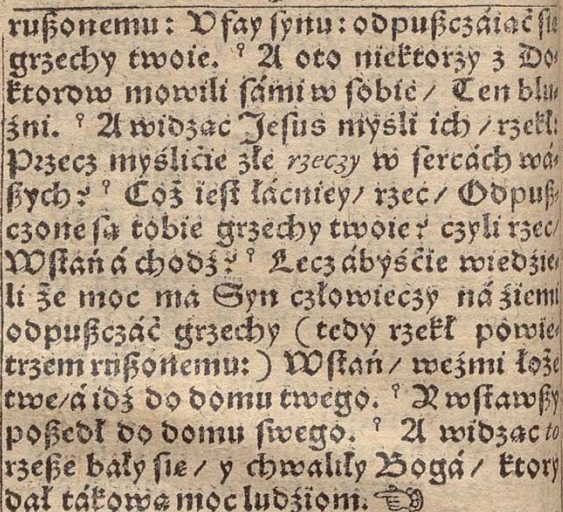 rußonemu: Ufay synu: odpußczáiąć się
grzechy twoie. ˀ A oto niektorzy z Do-
ktorow mowili sámi w sobie / Ten blu-
żni. ˀ A widząc Jesus myśli ich / rzekł:
Przecz myślicie złe rzeczy w sercách wá-
ßych? ˀ Coż iest łácniey / rzec / Odpuß-
czone są tobie grzechy twoie? czyli rzec /
Wstań á chodź? ˀ Lecz ábyście wiedzie-
li że moc ma Syn człowieczy ná źiemi
odpußczáć grzechy (tedy rzekł powie-
trzem rußonemu:) Wstań / weźmi łoże
twe / á idź do domu twego. ˀ Y wstawßy
poßedł do domu swego. ˀ A widząc to
rzeße bały się / y chwaliły Bogá / ktory
dał tákową moc ludźiom. ☜